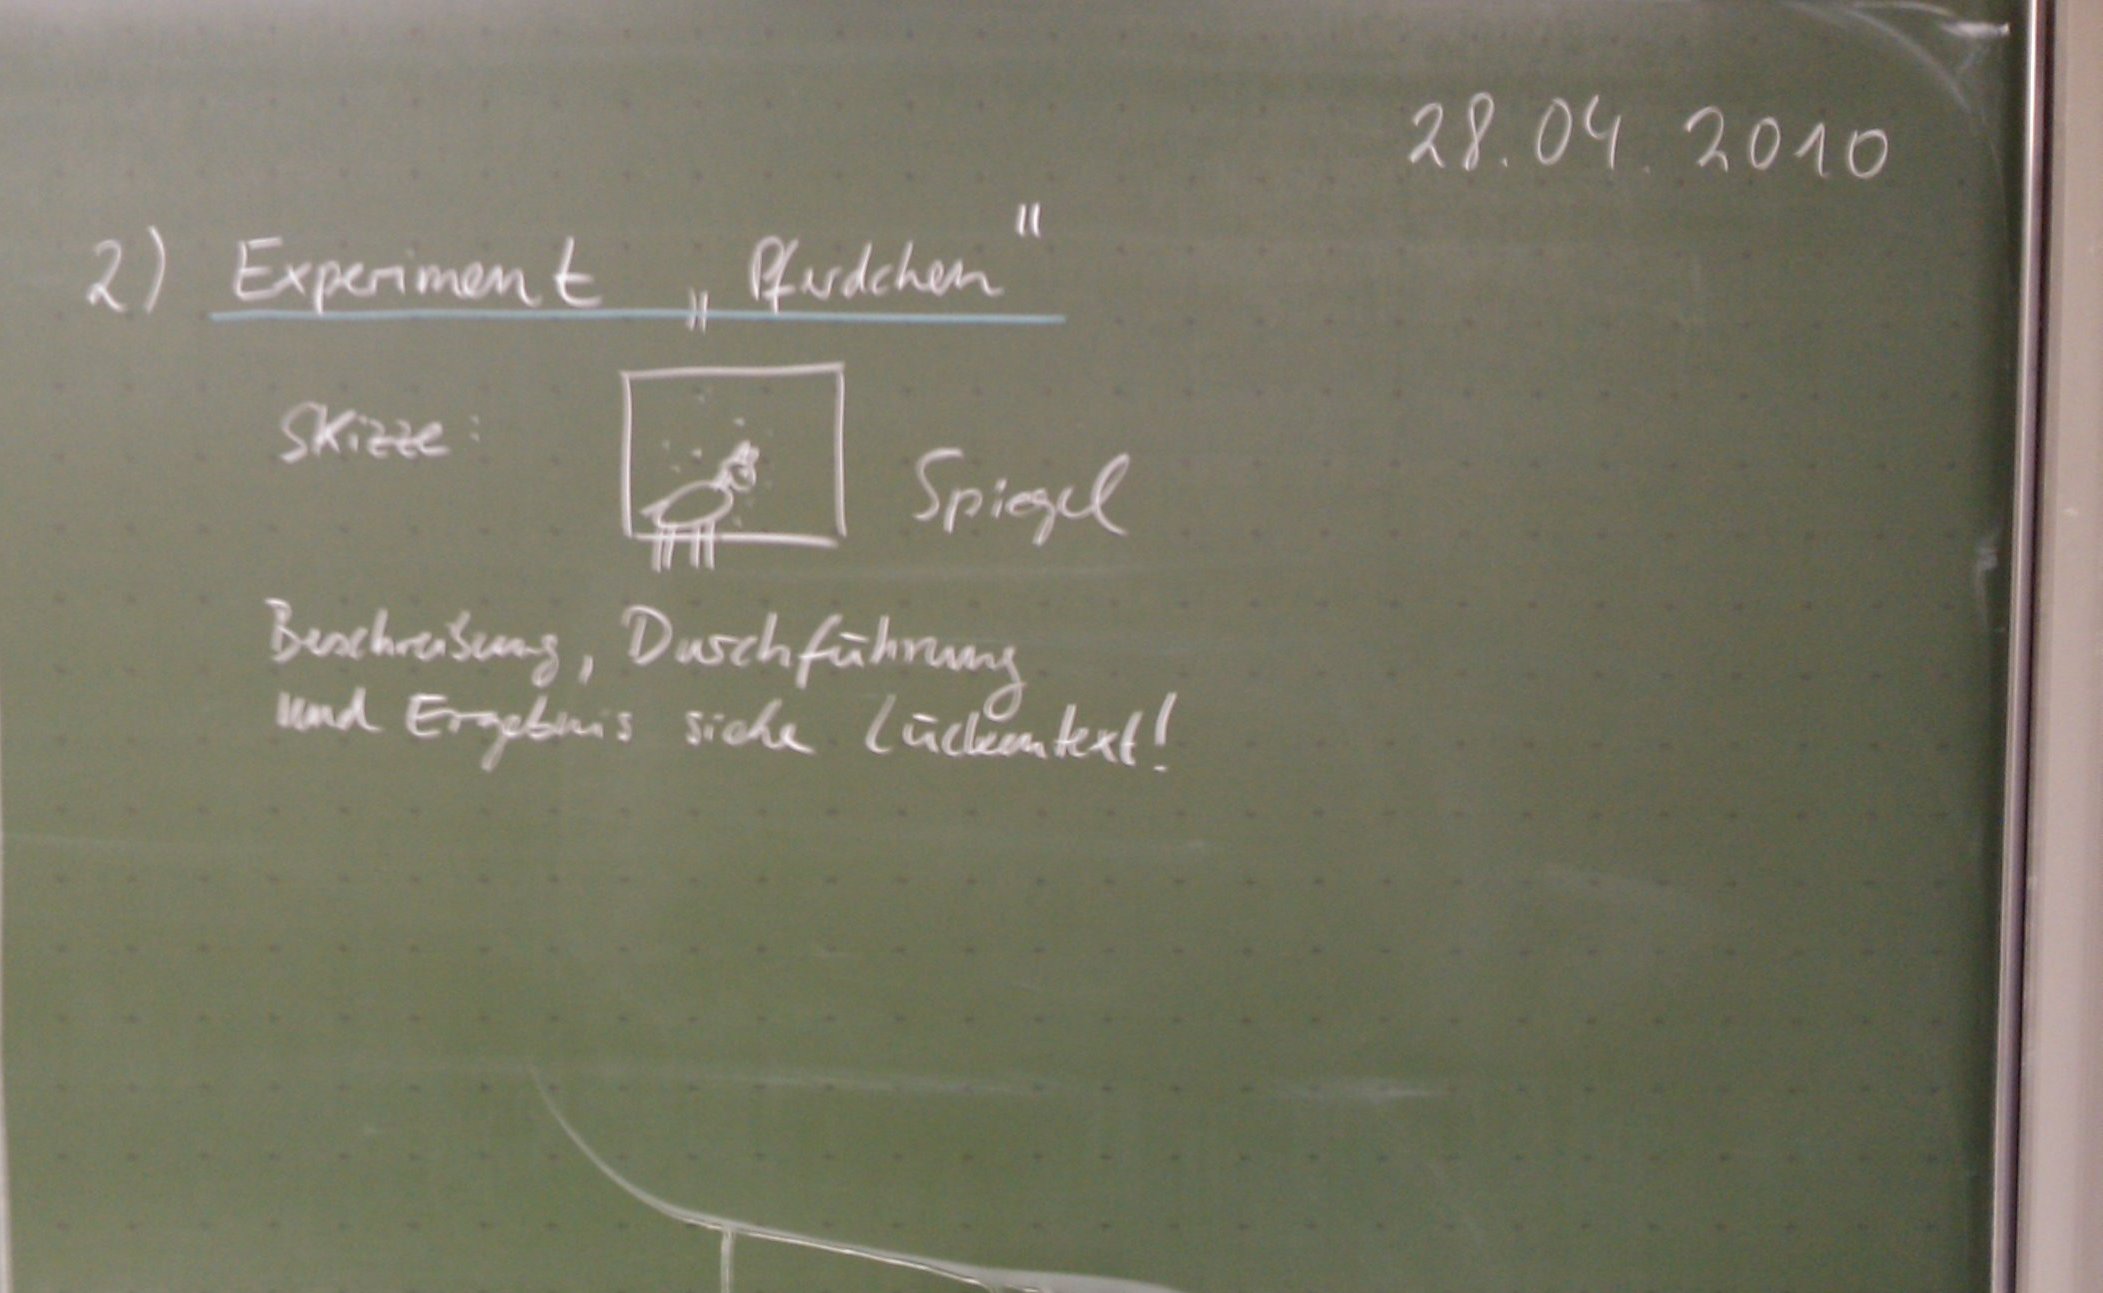 28.04.2010
2) Experiment „Pferdchen"
Skizze:
Spiegel
Beschreibung, Durchführung
und Ergebnis siehe Lückentext!